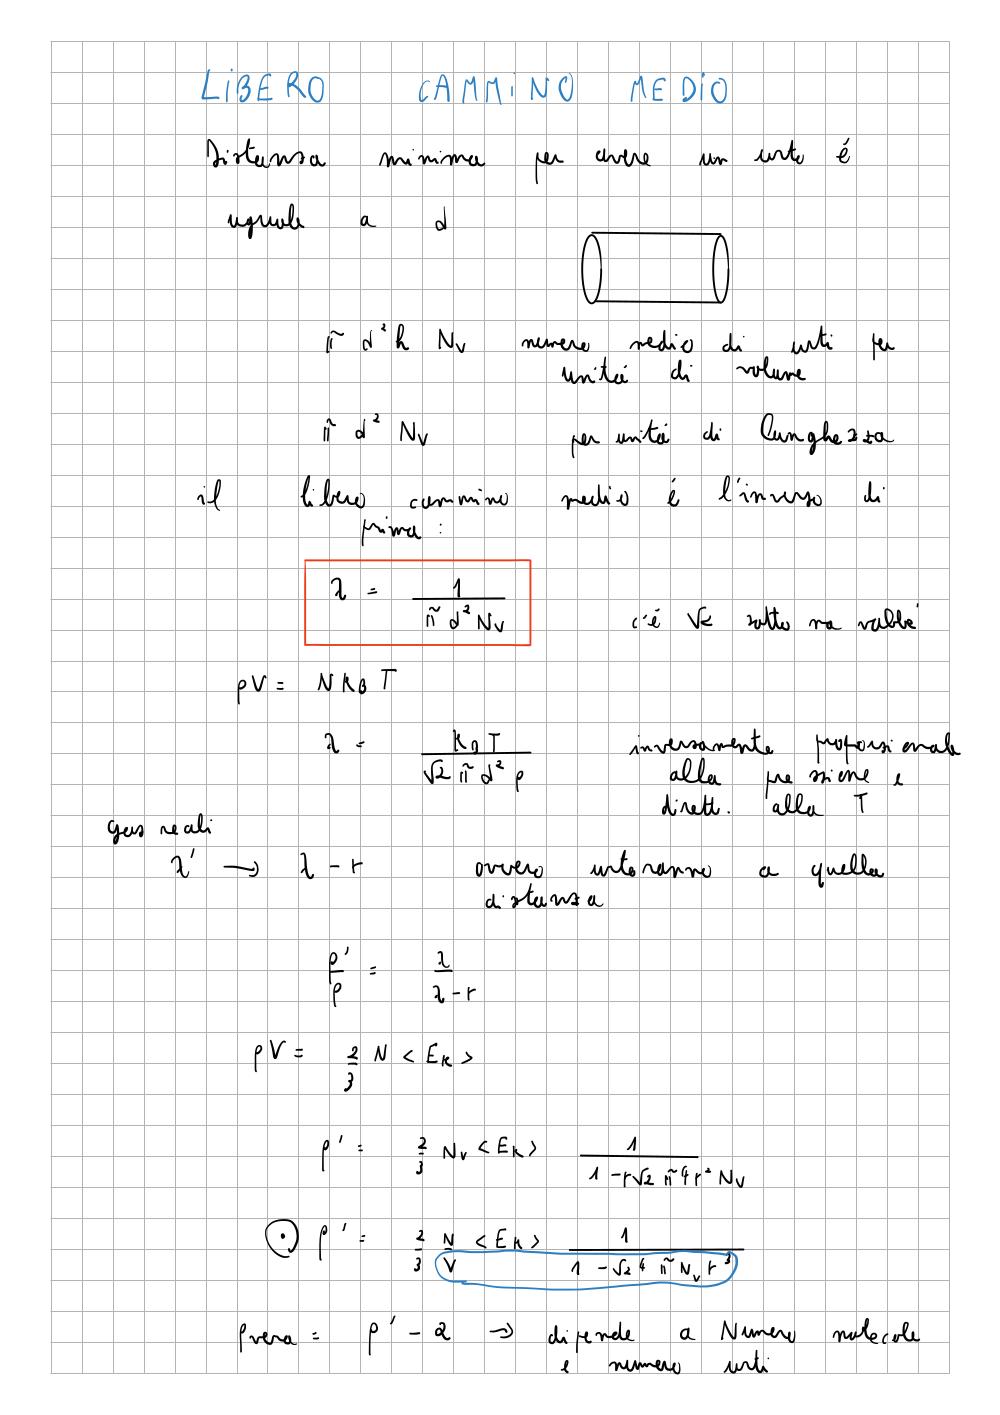 LIBERO CAMMINO MEDIO
Distanza minima per avere un urto é
uguale a d
π d² h Nv numero medio di urti per
unitá di volume
π d² Nv per unitá di lunghezza
il libero cammino medio é l'inverso di
prima :
λ = 1 / (π d² Nv)
c'é √2 sotto ma vabbé
pV = N KB T
λ = KB T / (√2 π d² p) inversamente proporzionale
alla pressione e
dirett. alla T
gas reali
λ' → λ - r ovvero urteranno a quella
distanza
p' / p = λ / (λ - r)
pV = 2/3 N < EK >
p' = 2/3 Nv < EK > 1 / (1 - r√2 π 4 r² Nv)
⊙ p' = 2/3 N/V < EK > 1 / (1 - √2 4 π Nv r³)
pvera = p' - a → dipende a Numero molecole
e numero urti